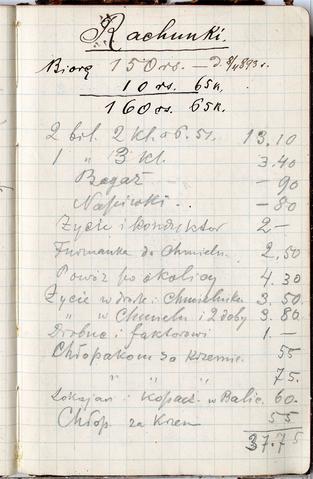 Rachunki.
Biorę 150 rs. — d. 8/4 893 r.
10 rs. 65 k.
160 rs. 65 k.
2 bil. 2 kl. 13.10
1 " 3 kl. 3.40
Bagaż — 90
Napiwki .. — 80
Życie i konduktor 2 —
Furmanka do Chmieln. 2.50
Powóz po okolicy 4.30
Życie w drodze i Chmielniku 3.50
" w Chmieln i 2 doby 3.80
Drobne i faktorowi 1. —
Chłopakom za krzemie. 55
" " " 75.
Lokajom i kopacz. w Balic. 60.
Chłop. za krzem 55
37.75